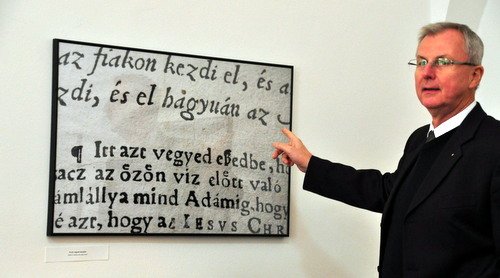 az fiakon kezdi el, és a
zdi, és el hágyuán az
¶ Itt azt vegyed eßedbe, h
acz az özön viz elött való
ámlállya mind Adámig, hogy
é azt, hogy az IESVS CHR